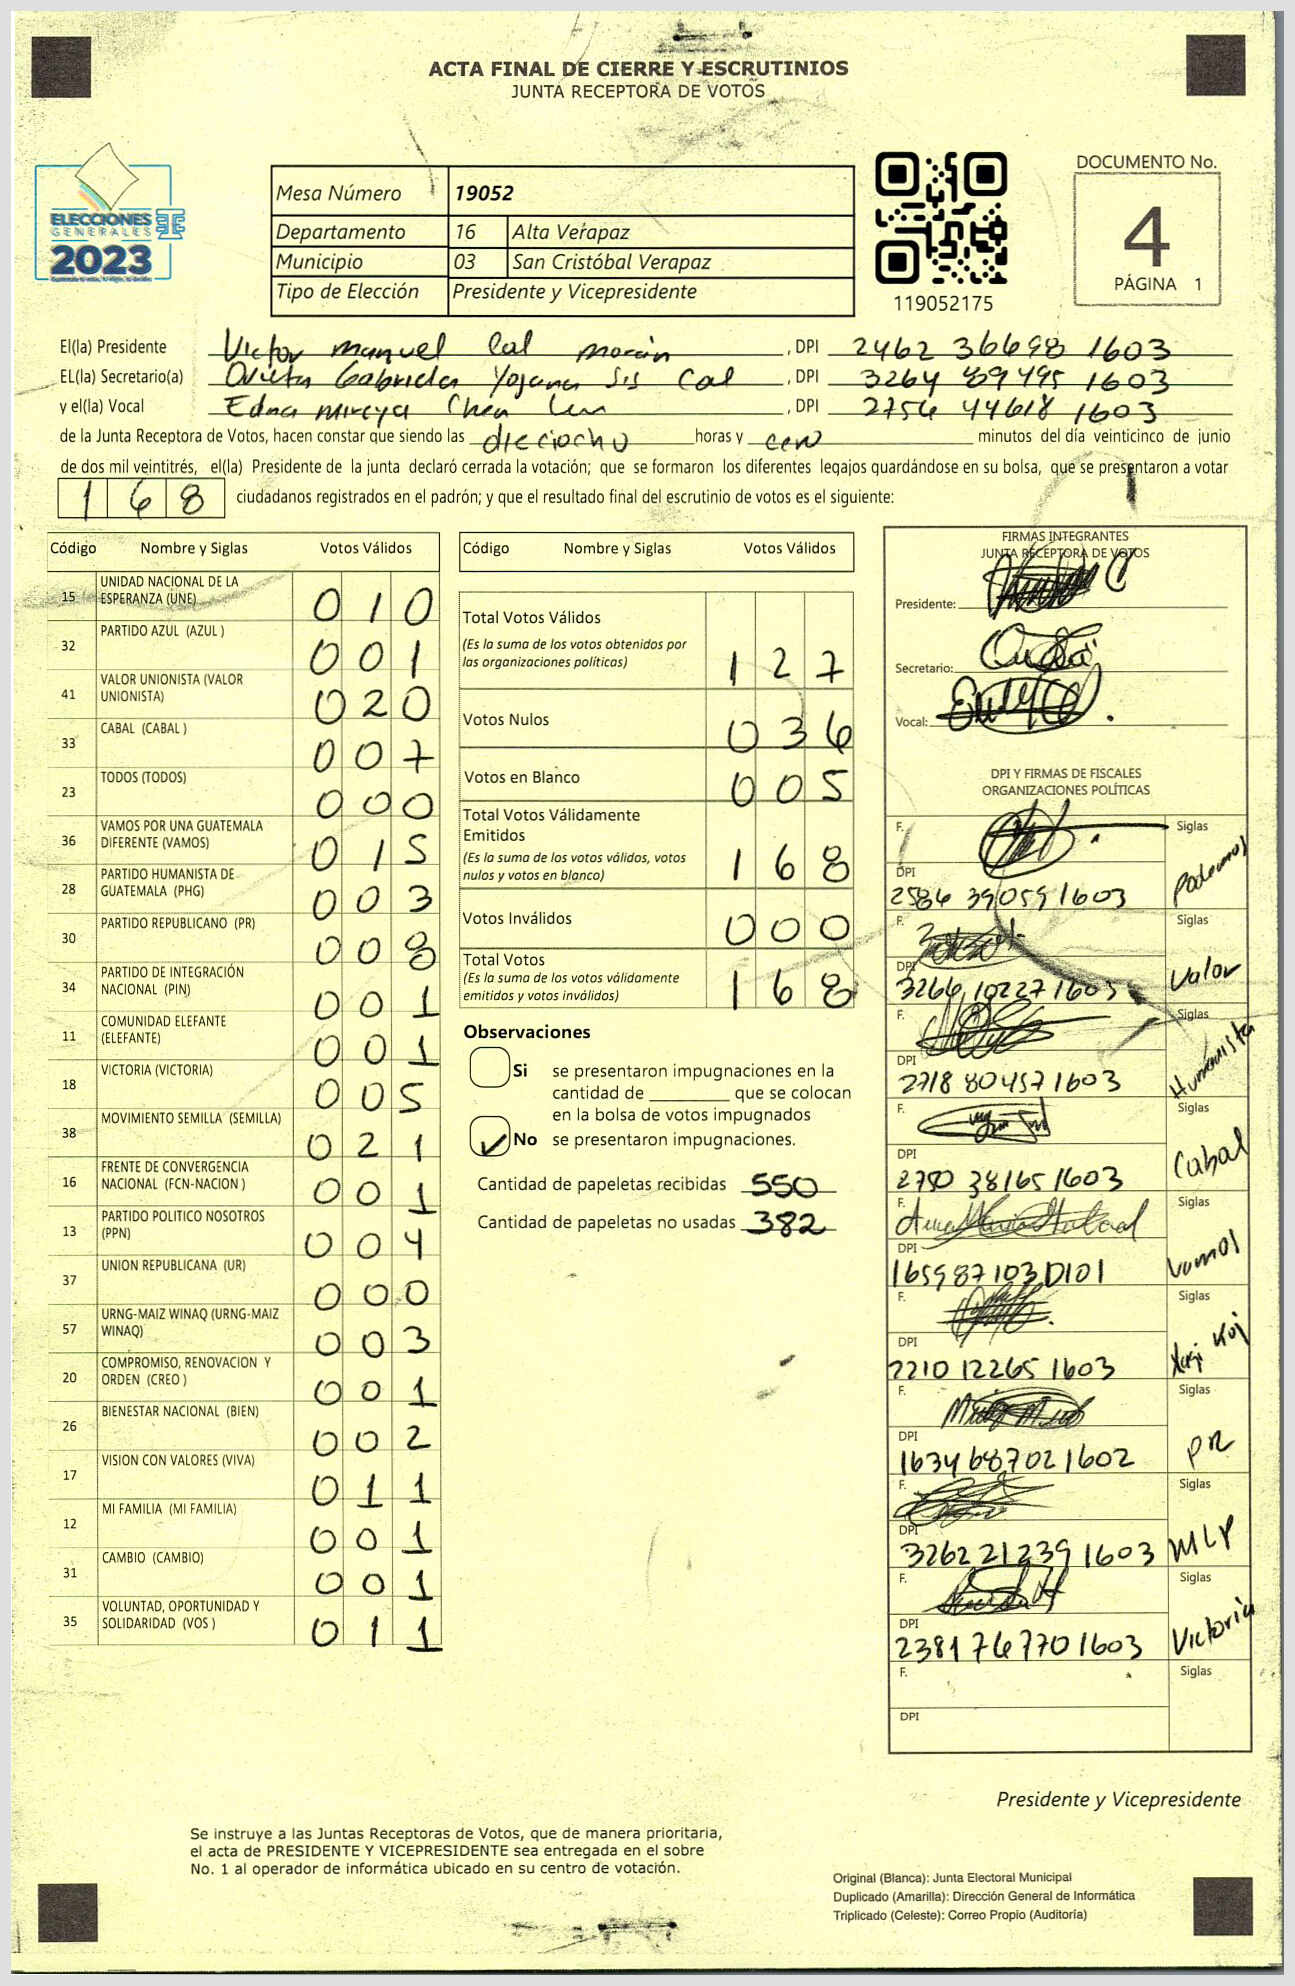 ACTA FINAL DE CIERRE Y ESCRUTINIOS
JUNTA RECEPTORA DE VOTOS
ELECCIONES
GENERALES
2023
Mesa Número 19052
Departamento 16 Alta Verapaz
Municipio 03 San Cristóbal Verapaz
Tipo de Elección Presidente y Vicepresidente
119052175
DOCUMENTO No.
4
PÁGINA 1
El(la) Presidente Victor Manuel Cal Morán , DPI 2462 36698 1603
EL(la) Secretario(a) Gabriela Yojana Sis Cal , DPI 3264 89495 1603
y el(la) Vocal Edna Mireya Chen , DPI 2756 44618 1603
de la Junta Receptora de Votos, hacen constar que siendo las dieciocho horas y cero minutos del día veinticinco de junio
de dos mil veintitrés, el(la) Presidente de la junta declaró cerrada la votación; que se formaron los diferentes legajos guardándose en su bolsa, que se presentaron a votar
168 ciudadanos registrados en el padrón; y que el resultado final del escrutinio de votos es el siguiente:
Código Nombre y Siglas Votos Válidos
15 UNIDAD NACIONAL DE LA ESPERANZA (UNE) 010
32 PARTIDO AZUL (AZUL ) 001
41 VALOR UNIONISTA (VALOR UNIONISTA) 020
33 CABAL (CABAL ) 007
23 TODOS (TODOS) 000
36 VAMOS POR UNA GUATEMALA DIFERENTE (VAMOS) 015
28 PARTIDO HUMANISTA DE GUATEMALA (PHG) 003
30 PARTIDO REPUBLICANO (PR) 008
34 PARTIDO DE INTEGRACIÓN NACIONAL (PIN) 001
11 COMUNIDAD ELEFANTE (ELEFANTE) 001
18 VICTORIA (VICTORIA) 005
38 MOVIMIENTO SEMILLA (SEMILLA) 021
16 FRENTE DE CONVERGENCIA NACIONAL (FCN-NACION ) 001
13 PARTIDO POLITICO NOSOTROS (PPN) 004
37 UNION REPUBLICANA (UR) 000
57 URNG-MAIZ WINAQ (URNG-MAIZ WINAQ) 003
20 COMPROMISO, RENOVACION Y ORDEN (CREO ) 001
26 BIENESTAR NACIONAL (BIEN) 002
17 VISION CON VALORES (VIVA) 011
12 MI FAMILIA (MI FAMILIA) 001
31 CAMBIO (CAMBIO) 001
35 VOLUNTAD, OPORTUNIDAD Y SOLIDARIDAD (VOS ) 011
Código Nombre y Siglas Votos Válidos
Total Votos Válidos
(Es la suma de los votos obtenidos por
las organizaciones políticas) 127
Votos Nulos 036
Votos en Blanco 005
Total Votos Válidamente
Emitidos
(Es la suma de los votos válidos, votos
nulos y votos en blanco) 168
Votos Inválidos 000
Total Votos
(Es la suma de los votos válidamente
emitidos y votos inválidos) 168
Observaciones
Si se presentaron impugnaciones en la
cantidad de ________ que se colocan
en la bolsa de votos impugnados
No se presentaron impugnaciones.
Cantidad de papeletas recibidas 550
Cantidad de papeletas no usadas 382
FIRMAS INTEGRANTES
JUNTA RECEPTORA DE VOTOS
Presidente:
Secretario:
Vocal:
DPI Y FIRMAS DE FISCALES
ORGANIZACIONES POLÍTICAS
F. Siglas Podemos
DPI
2586 39059 1603
F. Siglas Valor
DPI
3266 10227 1603
F. Siglas Humanista
DPI
2718 80457 1603
F. Siglas Cabal
DPI
2750 38165 1603
F. Siglas Vamos
DPI
1659871030101
F. Siglas
DPI
2210 12265 1603
F. Siglas PR
DPI
1634 68702 1602
F. Siglas MLP
DPI
3262 21239 1603
F. Siglas Victoria
DPI
2381 76770 1603
F. Siglas
DPI
Presidente y Vicepresidente
Se instruye a las Juntas Receptoras de Votos, que de manera prioritaria,
el acta de PRESIDENTE Y VICEPRESIDENTE sea entregada en el sobre
No. 1 al operador de informática ubicado en su centro de votación.
Original (Blanca): Junta Electoral Municipal
Duplicado (Amarilla): Dirección General de Informática
Triplicado (Celeste): Correo Propio (Auditoría)